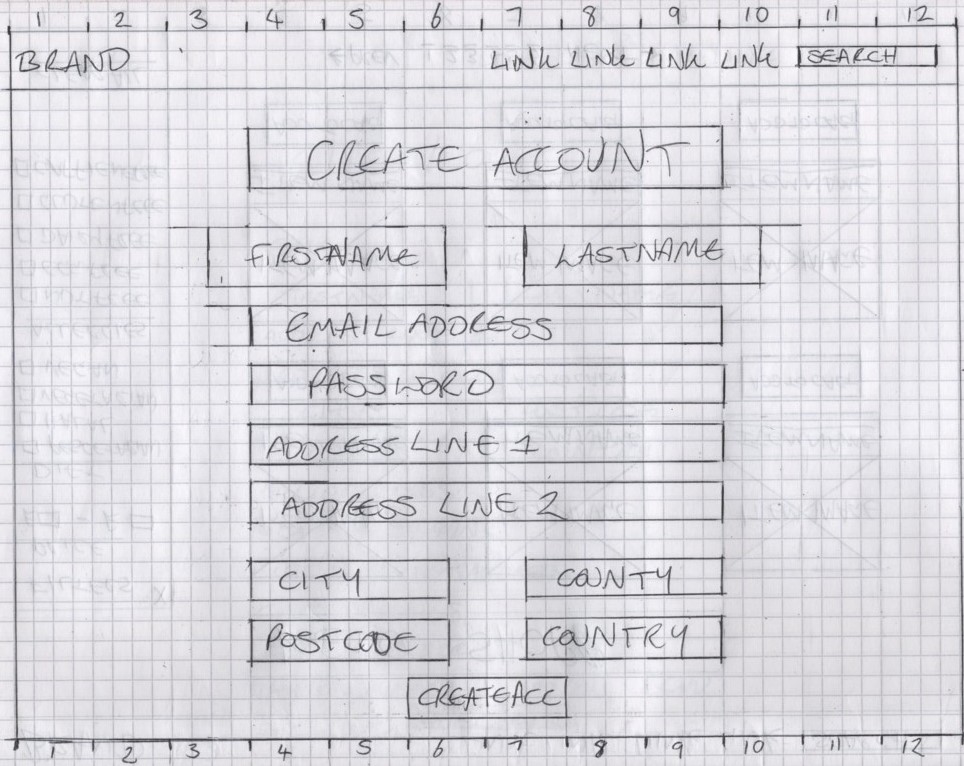 1 2 3 4 5 6 7 8 9 10 11 12
BRAND LINK LINK LINK LINK SEARCH
CREATE ACCOUNT
FIRSTNAME LASTNAME
EMAIL ADDRESS
PASSWORD
ADDRESS LINE 1
ADDRESS LINE 2
CITY COUNTY
POSTCODE COUNTRY
CREATEACC
1 2 3 4 5 6 7 8 9 10 11 12